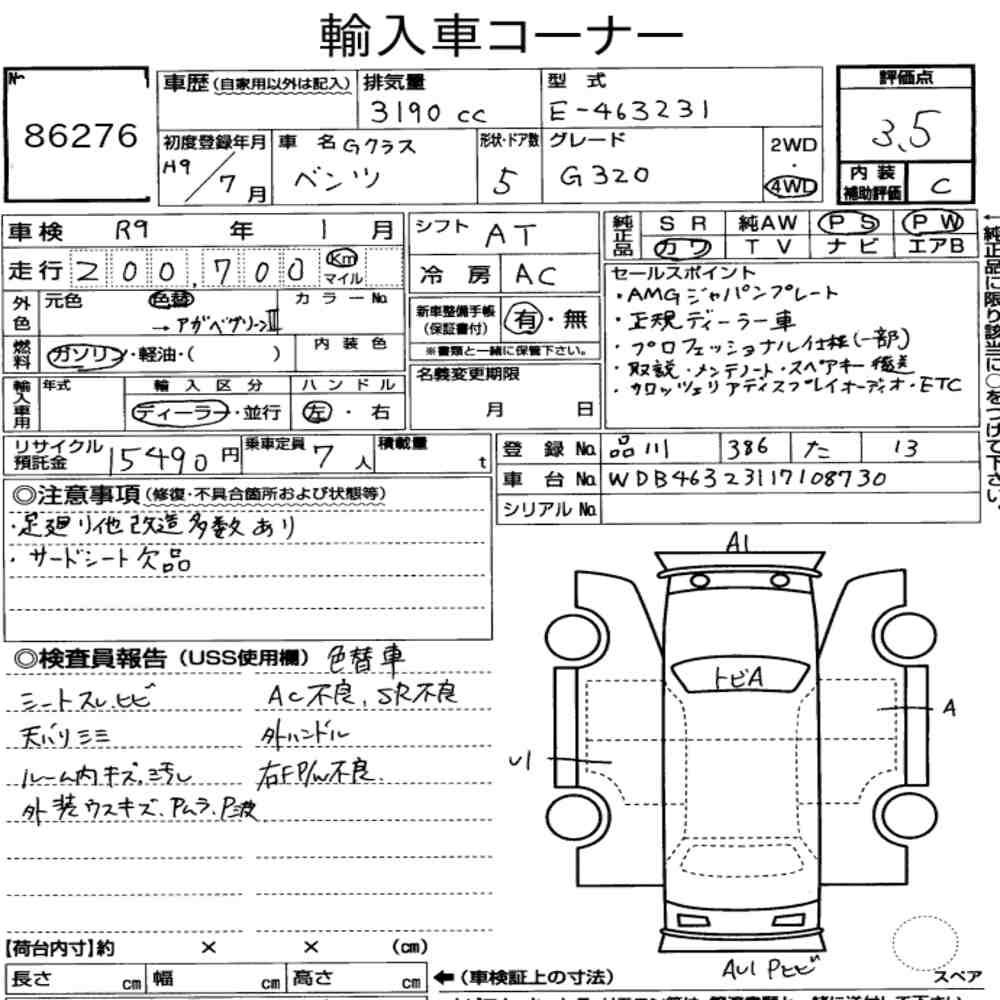 輸入車コーナー
No.
86276
車歴(自家用以外は記入)
排気量
3190 cc
型 式
E-463231
評価点
3.5
内装補助評価
C
初度登録年月
H9/7月
車 名 Gクラス
ベンツ
形状・ドア数
5
グレード
G320
2WD
・
4WD
車検 R9 年 1 月
走行 200,700 Km
マイル
シフト AT
冷 房 AC
純正品
SR 純AW PS PW
カワ TV ナビ エアB
外色
元色
色替
→アガベグリーンⅡ
カラーNo.
燃料
ガソリン・軽油・( )
内装色
新車整備手帳
(保証書付)
有・無
※書類と一緒に保管下さい。
セールスポイント
・AMGジャパンプレート
・正規ディーラー車
・プロフェッショナル仕様(一部)
・取説・メンテノート・スペアキー
・カロッツェリアディスプレイオーディオ・ETC
輸入車用
年式
輸入区分
ディーラー・並行
ハンドル
左・右
名義変更期限
月 日
リサイクル預託金 15490円
乗車定員 7人
積載量 t
登 録 No. 品川 386 た 13
車 台 No. WDB46323117108730
シリアル No.
◎注意事項(修復・不具合箇所および状態等)
・足廻り他改造多数あり
・サードシート欠品
◎検査員報告(USS使用欄) 色替車
シートスレ.ヒビ
天バリシミ
ルーム内キズ.汚れ
外装ウスキズ、Pムラ、P波
AC不良、SR不良
外ハンドル
右FP/W不良.
A1
トビA
A
U1
AU1 Pヒビ
スペア
【荷台内寸】約 × × (cm)
長さ cm 幅 cm 高さ cm
←(車検証上の寸法)
←純正品に限り該当に○をつけて下さい。